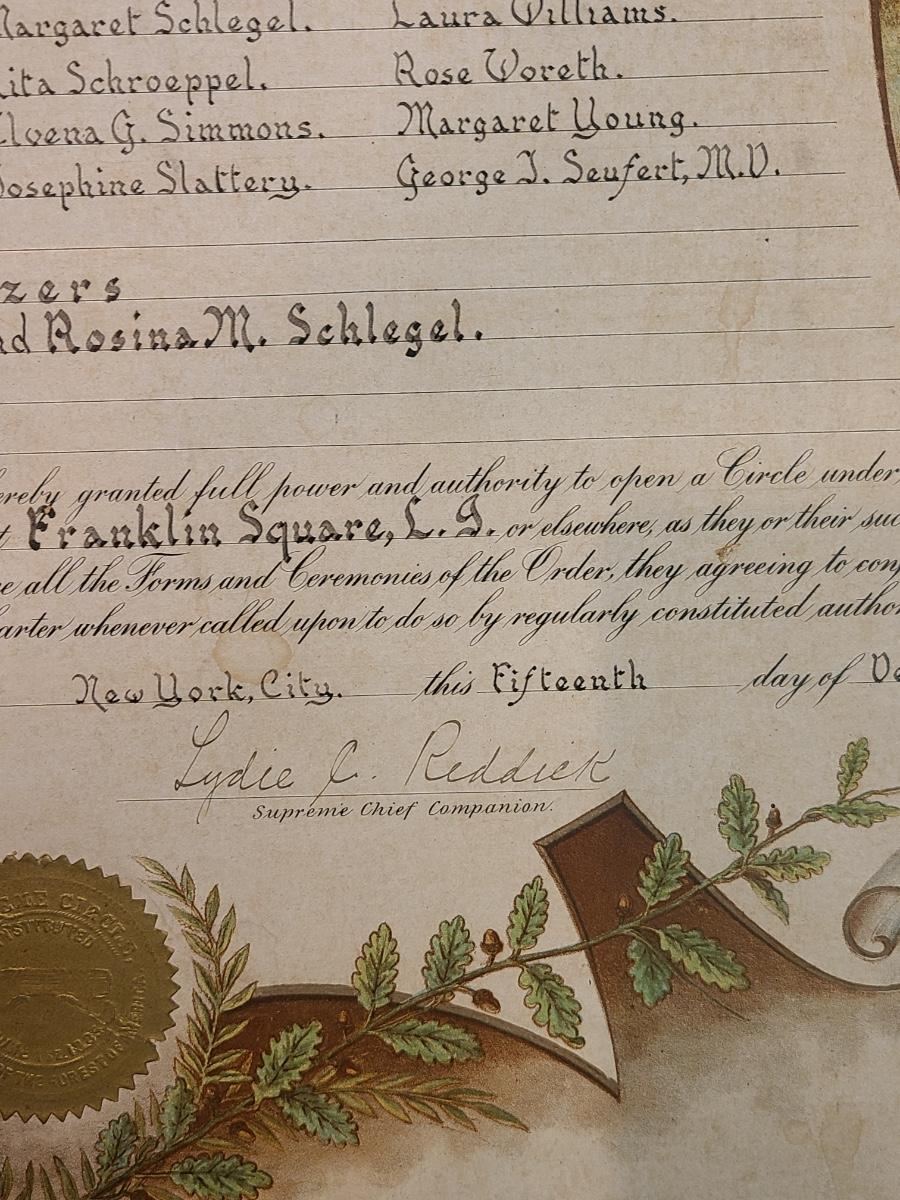 Margaret Schlegel. Laura Williams.
Rita Schroeppel. Rose Woreth.
Elvena G. Simmons. Margaret Young.
Josephine Slattery. George J. Seufert, M.D.
zers
nd Rosina M. Schlegel.
ereby granted full power and authority to open a Circle under
t Franklin Square, L. I. or elsewhere, as they or their suc
e all the Forms and Ceremonies of the Order, they agreeing to con
arter whenever called upon to do so by regularly constituted author
New York, City. this Fifteenth day of De
Lydie C. Reddick
Supreme Chief Companion.